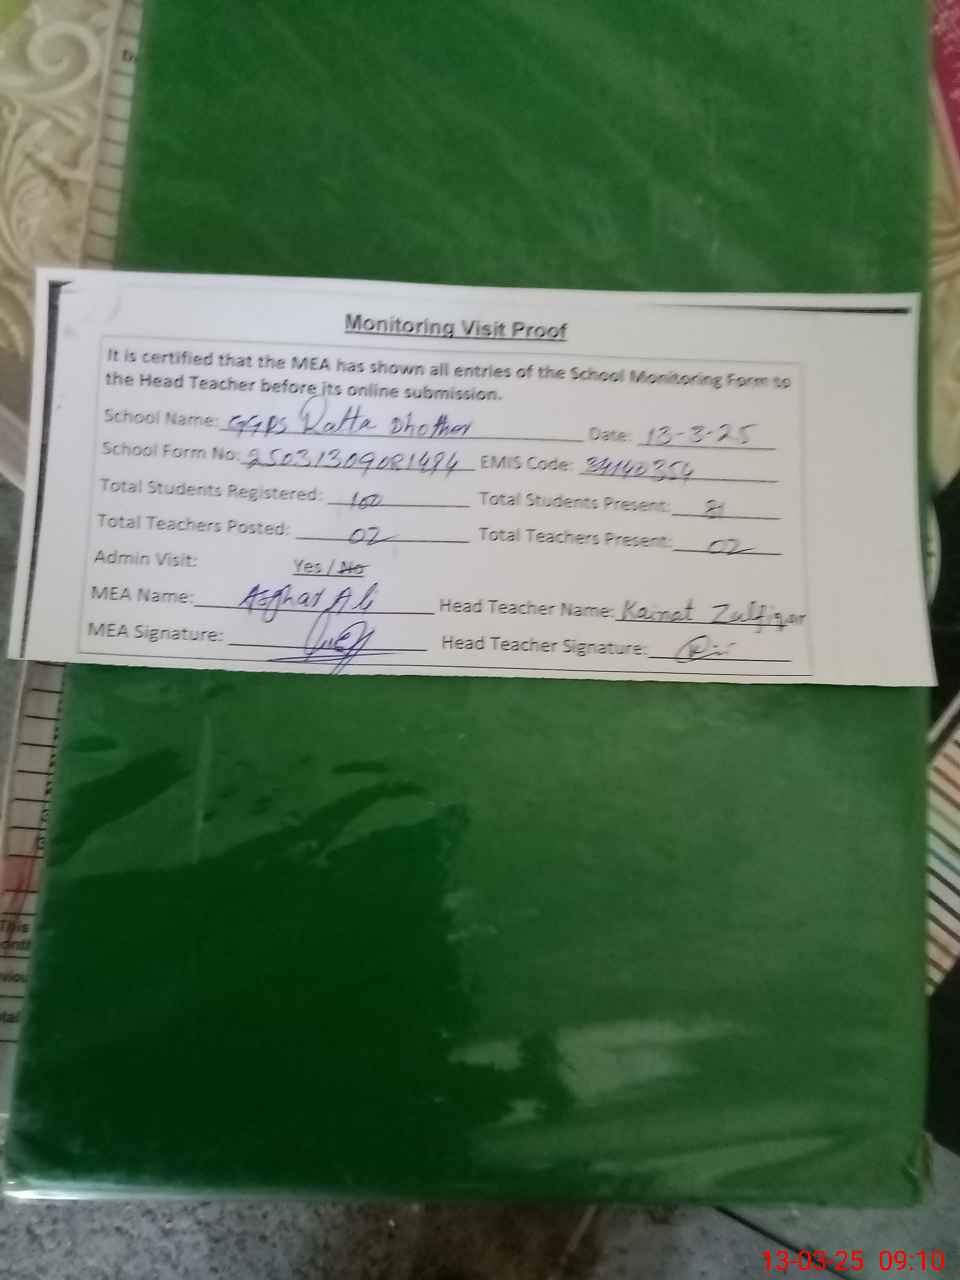 Monitoring Visit Proof
It is certified that the MEA has shown all entries of the School Monitoring Form to
the Head Teacher before its online submission.
School Name: GGPS Ratta Dhother Date: 13-3-25
School Form No: 25031309081494 EMIS Code: 34140354
Total Students Registered: 100 Total Students Present:
Total Teachers Posted: 02 Total Teachers Present: 02
Admin Visit: Yes / No
MEA Name: Asghar Ali Head Teacher Name: Kainat Zulfiqar
MEA Signature: Head Teacher Signature:
This
13-03-25 09:10